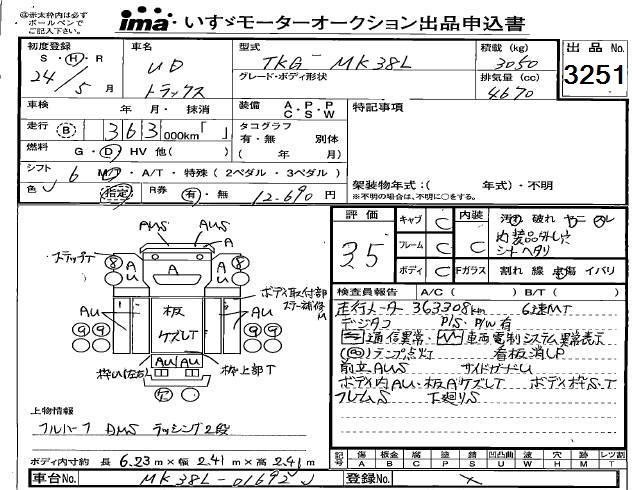 ◎赤太枠内は必ず
ボールペンで
ご記入下さい。
ima いすゞモーターオークション出品申込書
初度登録
S・H・R
24/5月
車名
UD
トラックス
型式
TKG-MK38L
グレード・ボディ形状
積載 (kg)
3050
排気量 (cc)
4670
出品 No.
3251
車検 年 月・抹消
走行 B 363,000km「 」
燃料 G・D・HV 他( )
シフト 6 MT・A/T・特殊(2ペダル・3ペダル)
色 指定 R券 有・無 12,690円
装備 A・P・P
C・S・W
タコグラフ
有・無 別体
( 年 月)
特記事項
架装物年式:( 年式)・不明
※不明の場合は、不明に○をする。
評価
3.5
キャブ C
フレーム C
ボディ C
内装 C
Fガラス
汚れ 破れ ヤニ
内装品外し穴
シートヘタリ
割れ 線 点傷 イバリ
検査員報告 A/C( ) B/T( )
走行メーター 363308km 6速MT
デジタコ P/S・P/W有
通信異常・車両電制システム異常表示
ランプ点灯 看板消しP
前立AUS サイドガードU
ボディ内AU・板AケズレT ボディ枠S・T
フレームS 下廻りS
ステップT
AUS
AUS
A
A
A
U
A
U
8
8
ボディ取付部
ステー補修
M
AU
AU
板
ケズレT
9 9
9 9
AU AU
枠U(左右)
枠上部T
穴
上物情報
フルハーフ DMS ラッシング2段
ボディ内寸約 長 6.23m×幅 2.41m×高 2.41m
記号 傷 A 板金 B 腐 C 塗 P 錆 S 凹凸曲 U 補 W 穴 H 跡 M レツ割 T
車台No. MK38L-01692 J
登録No.